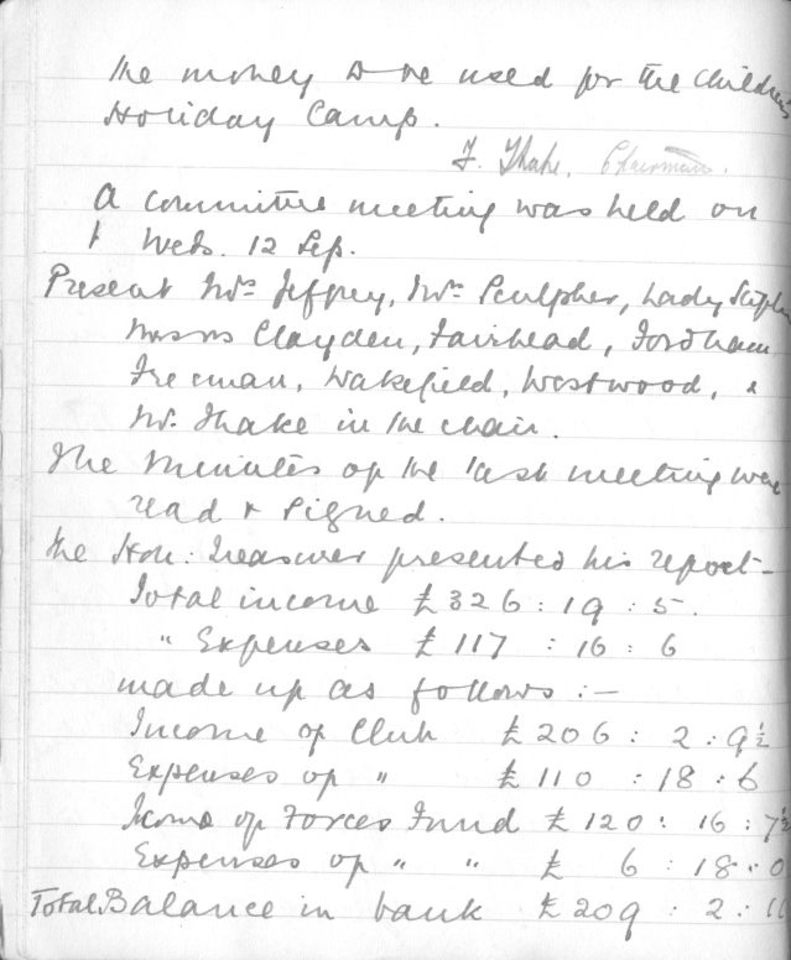 The money to be used for the Children's
Holiday Camp.
F. Thake. Chairman.
A committee meeting was held on
Weds. 12 Sep.
Present Mrs Jeffrey, Mrs Sculpher, Lady Stephen
Messrs Clayden, Fairhead, Fordham,
Freeman, Wakefield, Westwood, &
Mr. Thake in the chair.
The minutes of the last meeting were
read & signed.
The Hon: Treasurer presented his report -
Total income £326 : 19 : 5.
" Expenses £117 : 16 : 6
made up as follows :-
Income of Club £206 : 2 : 9½
Expenses of " £110 : 18 : 6
Icome of Forces Fund £120 : 16 : 7½
Expenses of " " £ 6 : 18 : 0
Total Balance in bank £209 : 2 : 11